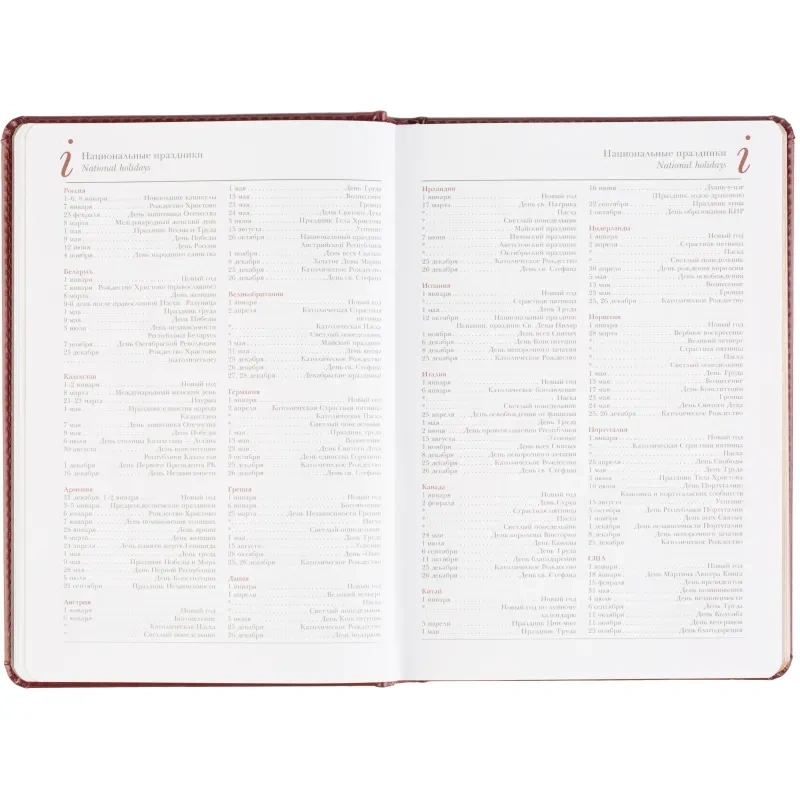 i
Национальные праздники
National holidays
Россия
1-6, 8 января Новогодние каникулы
7 января Рождество Христово
23 февраля День защитника Отечества
8 марта Международный женский день
1 мая Праздник Весны и Труда
9 мая День Победы
12 июня День России
4 ноября День народного единства
Беларусь
1 января Новый год
7 января Рождество Христово (православное)
8 марта День женщин
9-й день после православной Пасхи Радуница
1 мая Праздник труда
9 мая День Победы
3 июля День независимости
Республики Беларусь
7 ноября День Октябрьской Революции
25 декабря Рождество Христово
(католическое)
Казахстан
1-2 января Новый год
8 марта Международный женский день
21-23 марта Наурыз
1 мая Праздник единства народа
Казахстана
7 мая День защитника Отечества
9 мая День Победы
6 июля День столицы Казахстана — Астана
30 августа День конституции
Республики Казахстан
1 декабря День Первого Президента РК
16 декабря День Независимости
Армения
31 декабря, 1-2 января Новый год
3-5 января Предрождественские праздники
6 января Рождество Христово
7 января День поминовения усопших
28 января День армии
8 марта День женщин
24 апреля День памяти жертв Геноцида
1 мая День труда
9 мая Праздник Победы и Мира
28 мая День Первой Республики
5 июля День Конституции
21 сентября Праздник Независимости
Австрия
1 января Новый год
6 января Богоявление
* Католическая Пасха
* Светлый понедельник
1 мая День Труда
13 мая Вознесение
23 мая Троица
24 мая День Святого Духа
3 июня Праздник Тела Христова
15 августа Успение
26 октября Национальный праздник
Австрийской Республики
1 ноября День всех Святых
8 декабря Зачатие Девы Марии
25 декабря Католическое Рождество
26 декабря День св. Стефана
Великобритания
1 января Новый год
2 апреля Католическая Страстная
пятница
* Католическая Пасха
* Светлый понедельник
3 мая Майский праздник
31 мая День весны
25 декабря Католическое Рождество
26 декабря День св. Стефана
27, 28 декабря Декабрьские праздники
Германия
1 января Новый год
2 апреля Католическая Страстная пятница
* Католическая Пасха
* Светлый понедельник
1 мая Праздник труда
13 мая Вознесение
23 мая День Святого Духа
3 октября День единства Германии
25 декабря Католическое Рождество
26 декабря День св. Стефана
Греция
1 января Новый год
6 января Богоявление
25 марта День Независимости Греции
* Пасха
* Светлый понедельник
1 мая День Труда
15 августа Успение
28 октября День «Охи»
25, 26 декабря Католическое Рождество
Дания
1 января Новый год
1 апреля Великий четверг
* Пасха
* Светлый понедельник
5 июня День Конституции
25 декабря Католическое Рождество
26 декабря День подарков
Национальные праздники
National holidays
i
Ирландия
1 января Новый год
17 марта День св. Патрика
* Пасха
* Светлый понедельник
* Майский праздник
7 июня Июньский праздник
* Августовский праздник
* Октябрьский праздник
25 декабря Католическое Рождество
26 декабря День св. Стефана
Испания
1 января Новый год
* Страстная пятница
1 мая День Труда
12 октября Национальный праздник
Испании, праздник Св. Девы Пилар
1 ноября День всех Святых
6 декабря День Конституции
8 декабря День непорочного зачатия
25 декабря Католическое Рождество
Италия
1 января Новый год
6 января Католическое богоявление
* Пасха
* Светлый понедельник
25 апреля День освобождения от фашизма
1 мая День Труда
2 июня День провозглашения Республики
15 августа Успение
1 ноября День всех Святых
8 декабря День непорочного зачатия
25 декабря Католическое Рождество
26 декабря День св. Стефана
Канада
1 января Новый год
2 февраля День Сурка
* Страстная пятница
* Пасха
* Светлый понедельник
24 мая День королевы Виктории
1 июля День Канады
6 сентября День Труда
11 октября День благодарения
25 декабря Католическое Рождество
26 декабря День св. Стефана
Китай
1 января Новый год
* Новый год по лунному
календарю
5 апреля Праздник Цинмин
1 мая Праздник Труда
16 июня Дуань-у-цзе
(Праздник лодок-драконов)
22 сентября Праздник луны
1 октября День образования КНР
Нидерланды
1 января Новый год
2 апреля Страстная пятница
* Пасха
* Светлый понедельник
30 апреля День рождения королевы
5 мая День освобождения
13 мая Вознесение
23 мая Троица
25, 26 декабря Католическое Рождество
Норвегия
1 января Новый год
28 марта Вербное воскресенье
* Великий четверг
* Страстная пятница
* Пасха
* Светлый понедельник
1 мая День Труда
13 мая Вознесение
17 мая День Конституции
23 мая Троица
24 мая День Святого Духа
25, 26 декабря Католическое Рождество
Португалия
1 января Новый год
* Католическая Страстная пятница
* Пасха
25 апреля День Свободы
1 мая День Труда
3 июня Праздник Тела Христова
10 июня День Португалии,
Камоэнса и португальских сообществ
15 августа Успение
5 октября День Республики Португалии
1 ноября День всех Святых
1 декабря День независимости Португалии
8 декабря День непорочного зачатия
25 декабря Католическое Рождество
США
1 января Новый год
18 января День Мартина Лютера Кинга
15 февраля День президентов
31 мая День поминовения
4 июля День независимости
6 сентября День Труда
11 октября День Колумба
11 ноября День ветеранов
25 ноября День благодарения